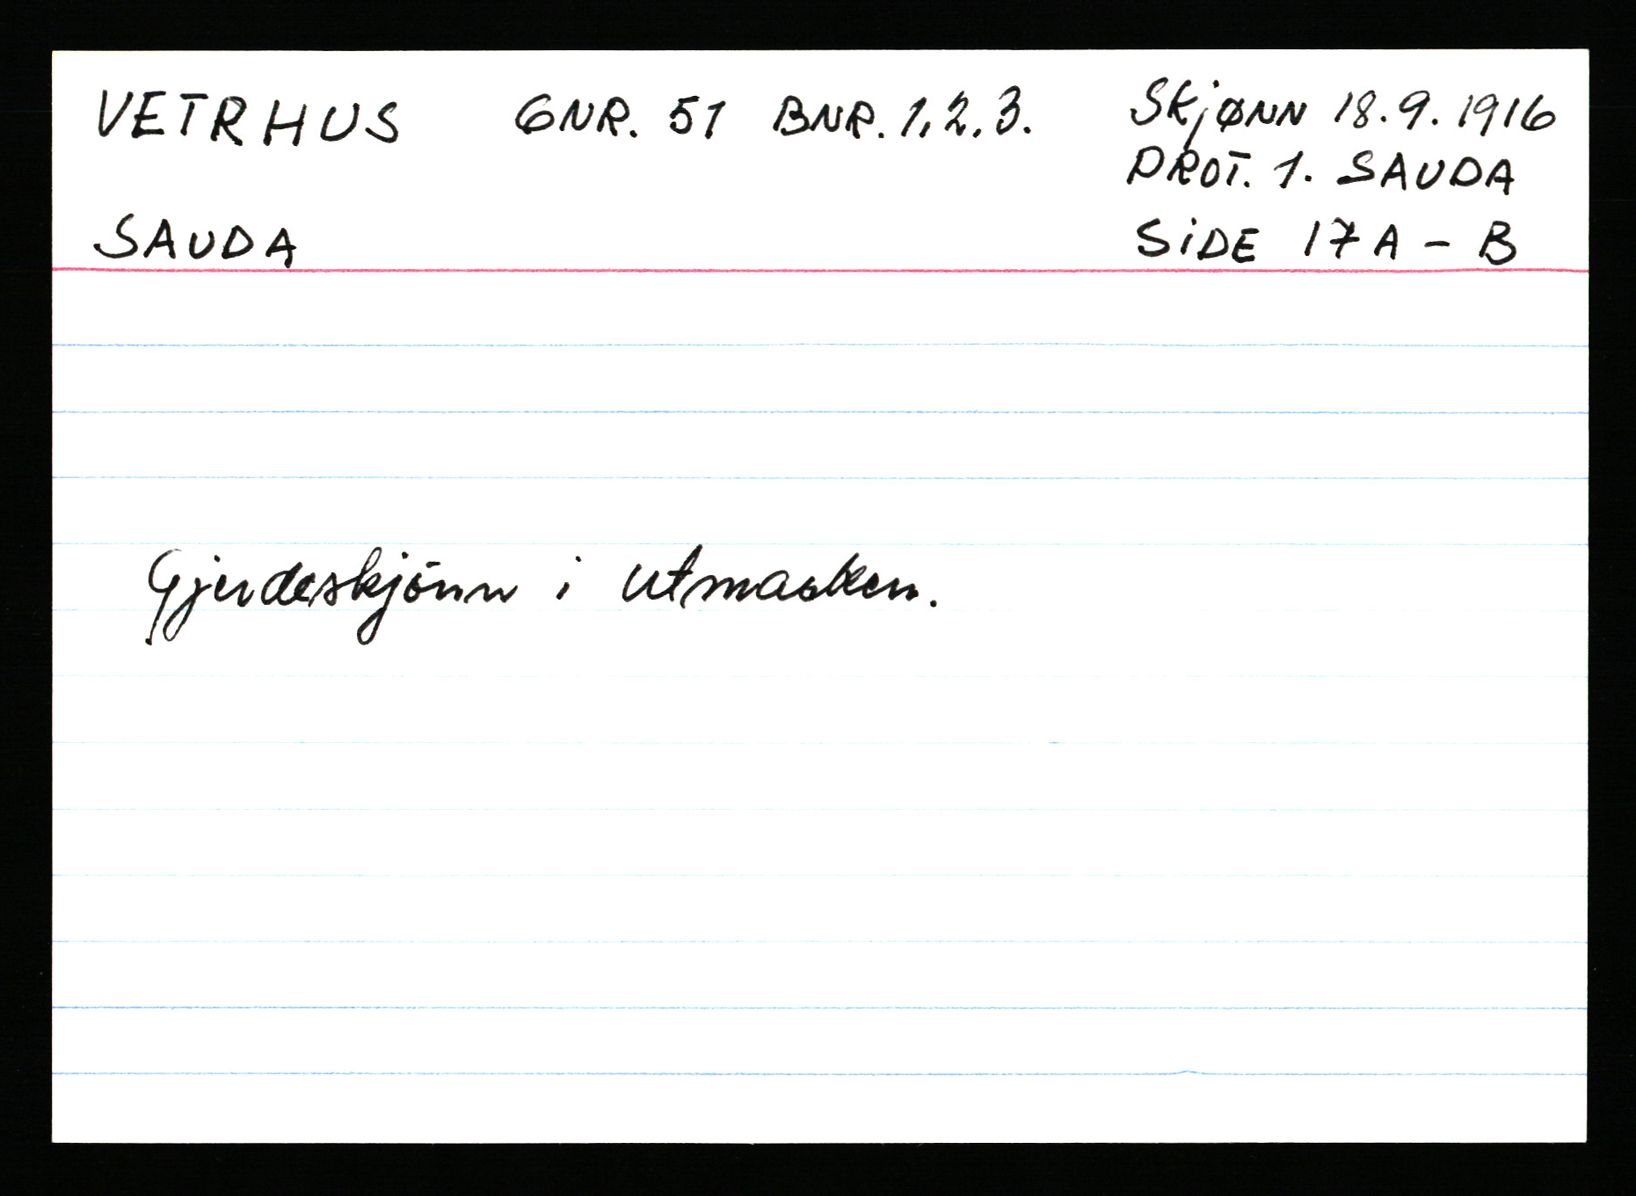 VETRHUS GNR. 51 BNR. 1,2,3. Skjønn 18.9.1916
PROT. 1. SAUDA
SAUDA SiDE 17A - B
Gjerdeskjönn i utmarken.